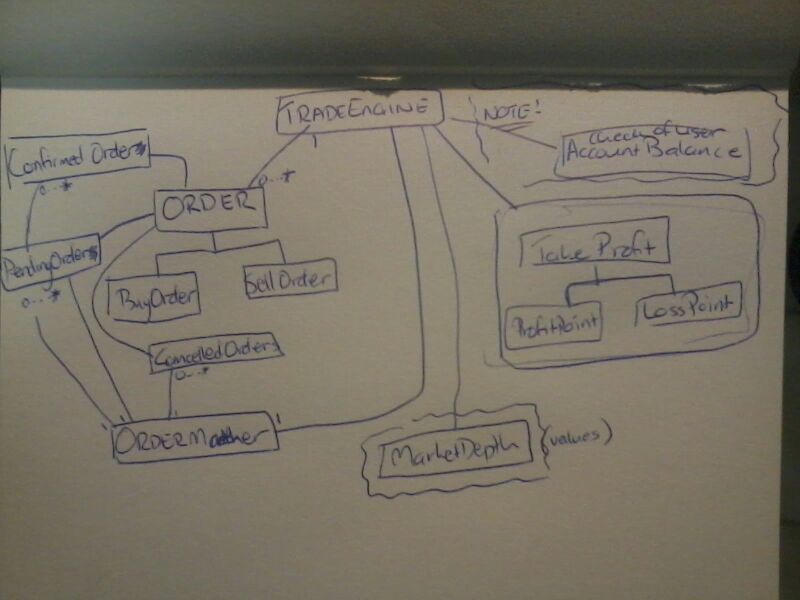 TRADEENGINE
NOTE!
check of user
Account Balance
Confirmed Orders
0...*
1
0...*
ORDER
Take Profit
PendingOrders
0...*
BuyOrder
SellOrder
ProfitPoint
LossPoint
CancelledOrders
0...*
1
1
ORDERMatcher
MarketDepth
(values)